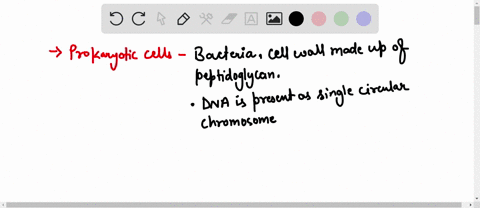 → Prokaryotic cells - Bacteria. cell wall made up of
peptidoglycan.
• DNA is present as single circular
chromosome